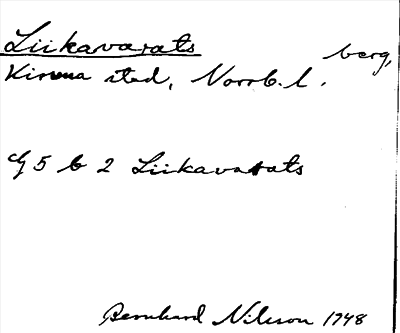 Liikavarats berg,
Kiruna stad, Norrb. l.
G 5 b 2 Liikavarats
Bernhard Nilsson 1948